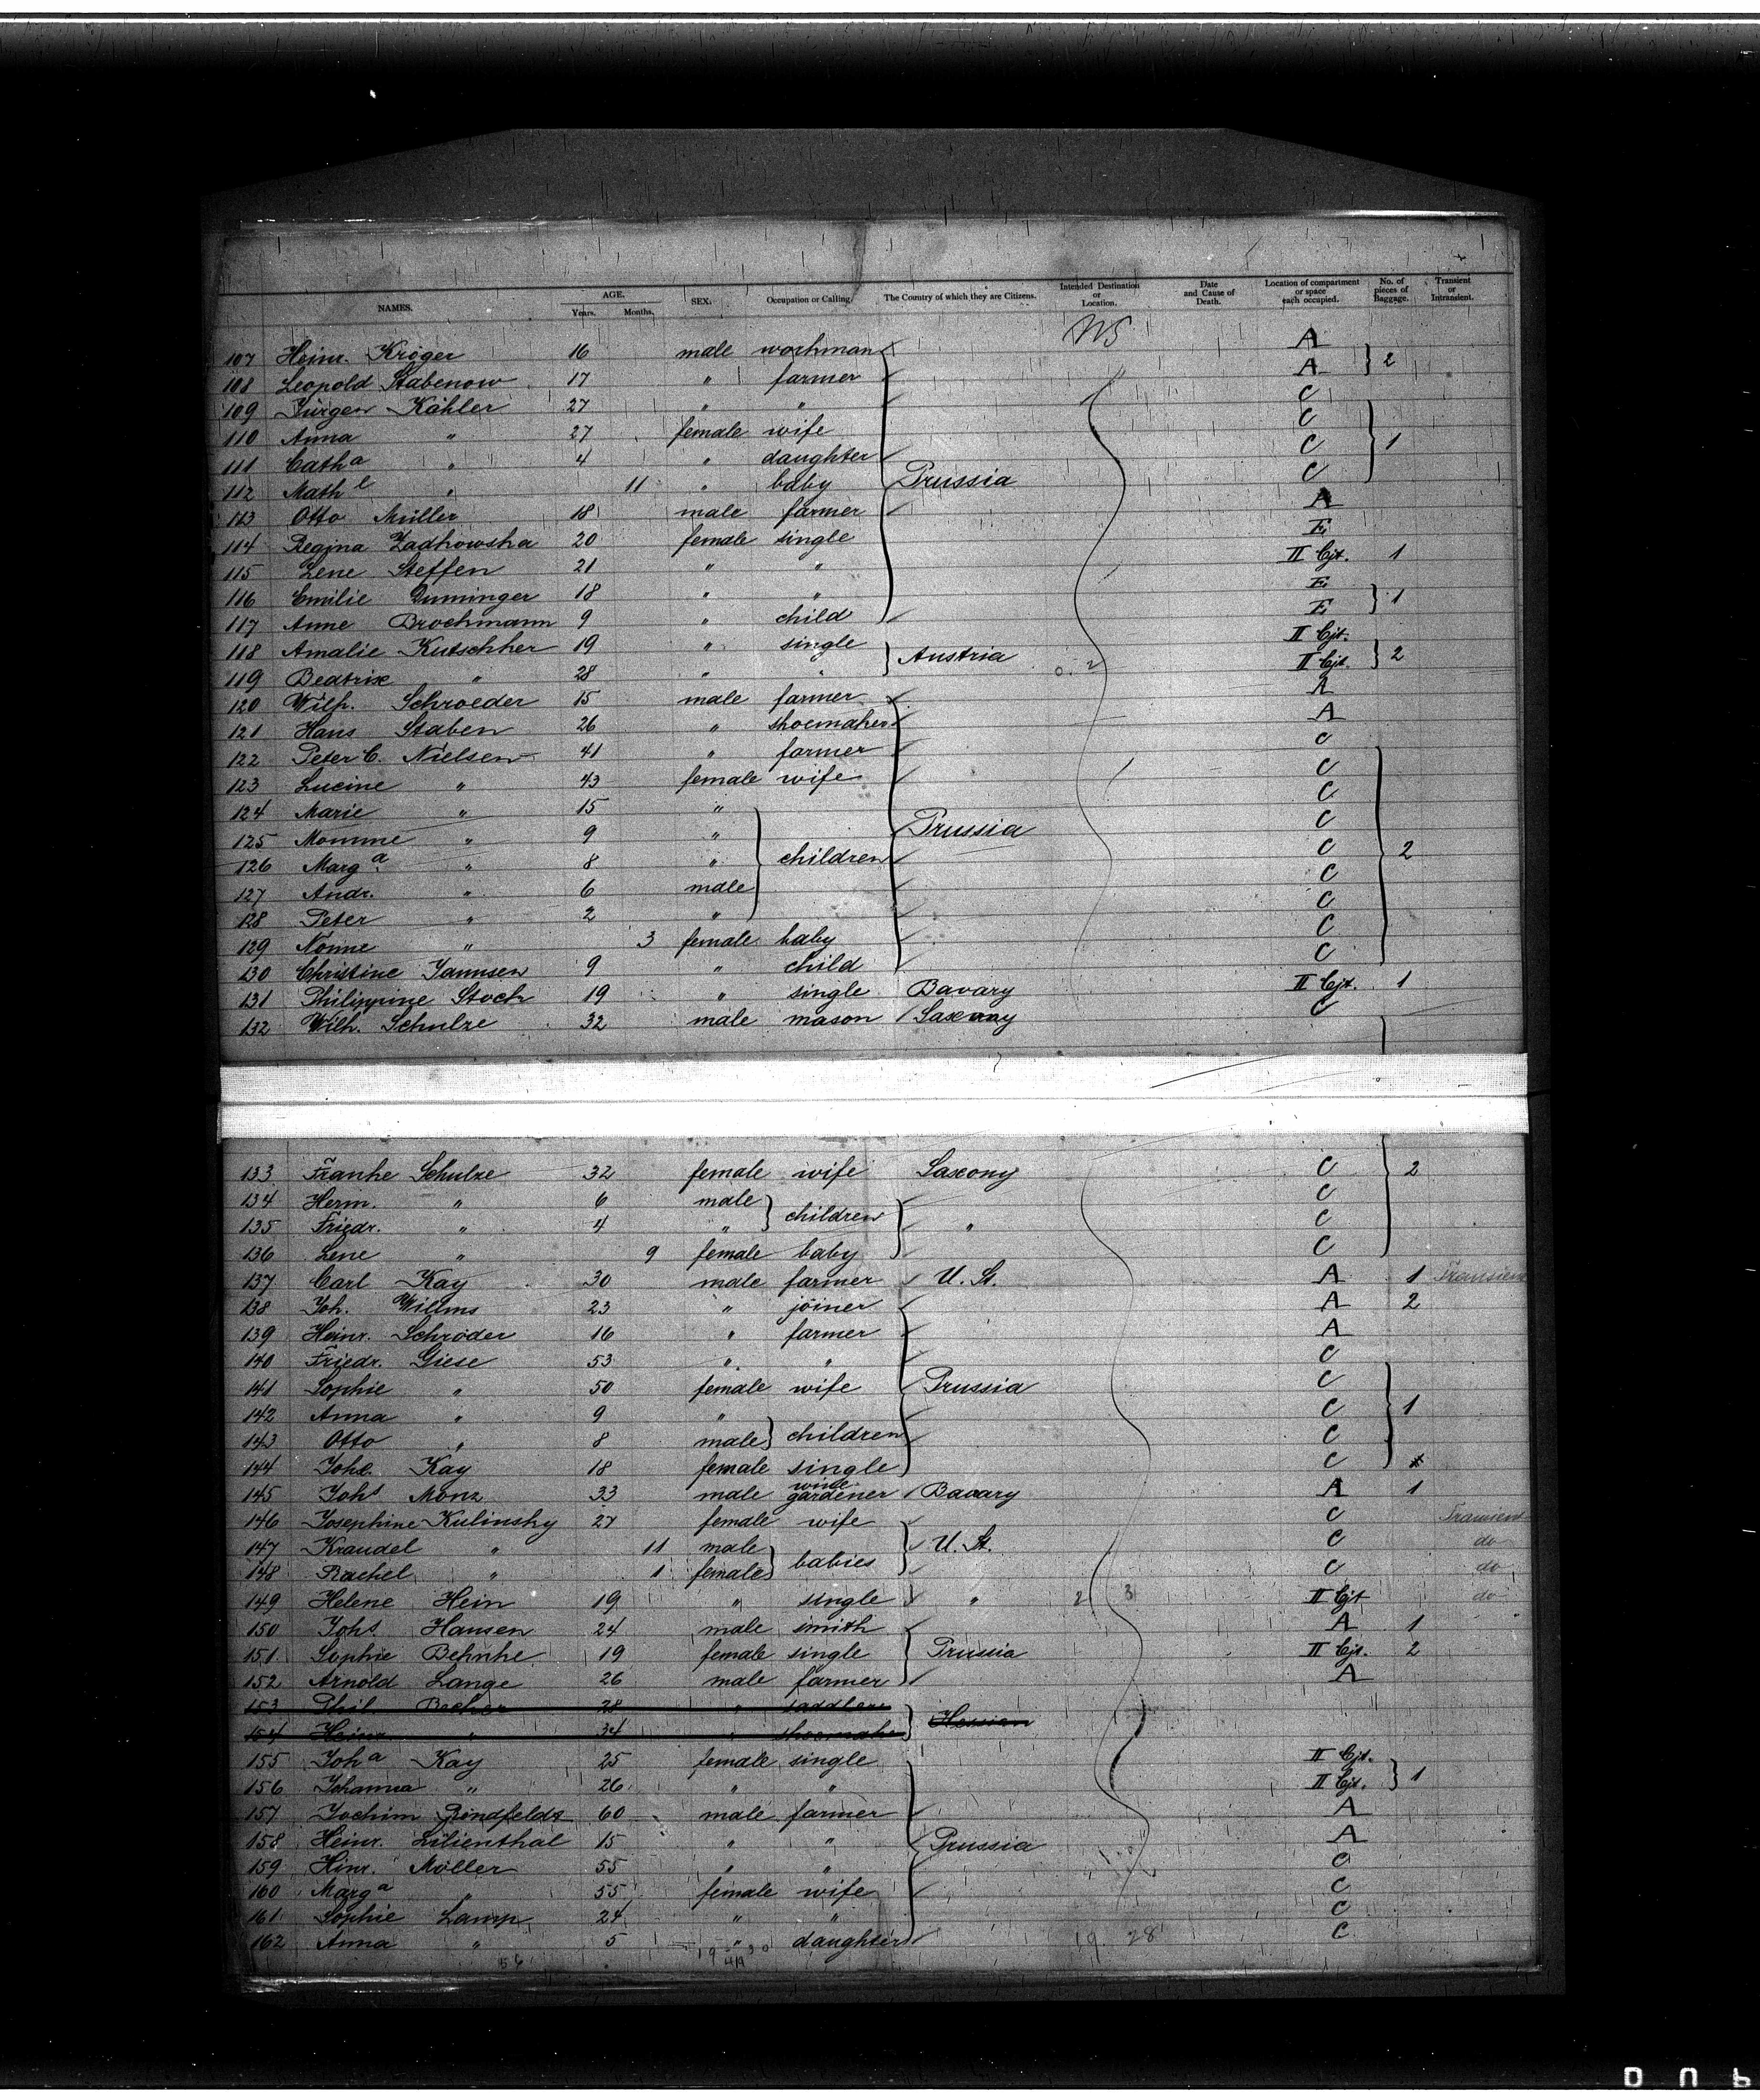 NAMES. AGE. Years. Months. SEX. Occupation or Calling. The Country of which they are Citizens. Intended Destination or Location. Date and Cause of Death. Location of compartment or space each occupied. No. of pieces of Baggage. Transient or Intransient.
107 Heinr. Kröger 16 male workman A
108 Leopold Stabenow 17 " farmer A 2
109 Jürgen Kähler 27 " " C
110 Anna " 27 female wife C
111 Cath a " 4 " daughter C 1
112 Math e " 11 " baby Prussia C
113 Otto Müller 18 male farmer A
114 Regina Zadkowska 20 female single E
115 Lene Steffen 21 " " II Cjt. 1
116 Emilie Dumminger 18 " " E
117 Anne Brockmann 9 " child E 1
118 Amalie Kutschker 19 " single II Cjt.
119 Beatrix " 28 " " Austria II Cjt. 2
120 Wilh. Schroeder 15 male farmer A
121 Hans Staben 26 " shoemaker A
122 Peter C. Nielsen 41 " farmer C
123 Lucine " 43 female wife C
124 Marie " 15 " C
125 Momme " 9 " Prussia C
126 Marg a " 8 " children C 2
127 Andr. " 6 male C
128 Peter " 2 " C
129 Nonne " 3 female baby C
130 Christine Jannsen 9 " child C
131 Philippine Stock 19 " single Bavary II Cjt. 1
132 Wilh. Schulze 32 male mason Saxony C
133 Franke Schulze 32 female wife Saxony C 2
134 Herm. " 6 male C
135 Friedr. " 4 " children " C
136 Lene " 9 female baby C
137 Carl Kay 30 male farmer U. St. A 1 Transient
138 Joh. Willms 23 " joiner A 2
139 Heinr. Schröder 16 " farmer A
140 Friedr. Giese 53 " " C
141 Sophie " 50 female wife Prussia C
142 Anna " 9 " C 1
143 Otto " 8 male children C
144 Johe. Kay 18 female single C
145 Johs Monz 33 male wine gardener Bavary A 1
146 Josephine Kulinsky 27 female wife C Transient
147 Kraudel " 11 male U. St. C do
148 Rachel " 1 female babies C do
149 Helene Hein 19 " single " 2 3 II Cjt do
150 Johs Hansen 24 male smith A 1
151 Sophie Behnke 19 female single Prussia II Cjt. 2
152 Arnold Lange 26 male farmer A
153 Phil Becker 28 " saddler
154 Heinr. " 34 " shoemaker Hessian
155 Joh a Kay 25 female single II Cjt.
156 Johanna " 26 " " II Cjt. 1
157 Jochim Rindfeldt 60 male farmer A
158 Heinr. Lilienthal 15 " " Prussia A
159 Hinr. Möller 55 " " C
160 Marg a " 55 female wife C
161 Sophie Lamp 24 " " C
162 Anna " 5 " daughter 19 28 C